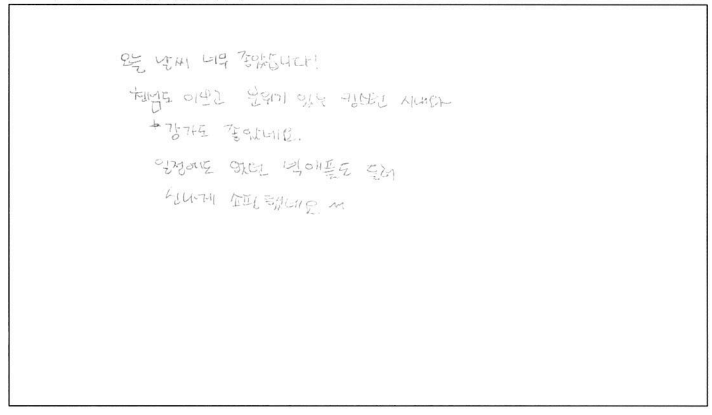 오늘 날씨 너무 좋았습니다!
벽넘도 이쁘고 분위기 있는 강변 시내와
강가도 좋았네요.
일정에도 없던 벽애플도 들러
신나게 쇼핑했네요 ^^